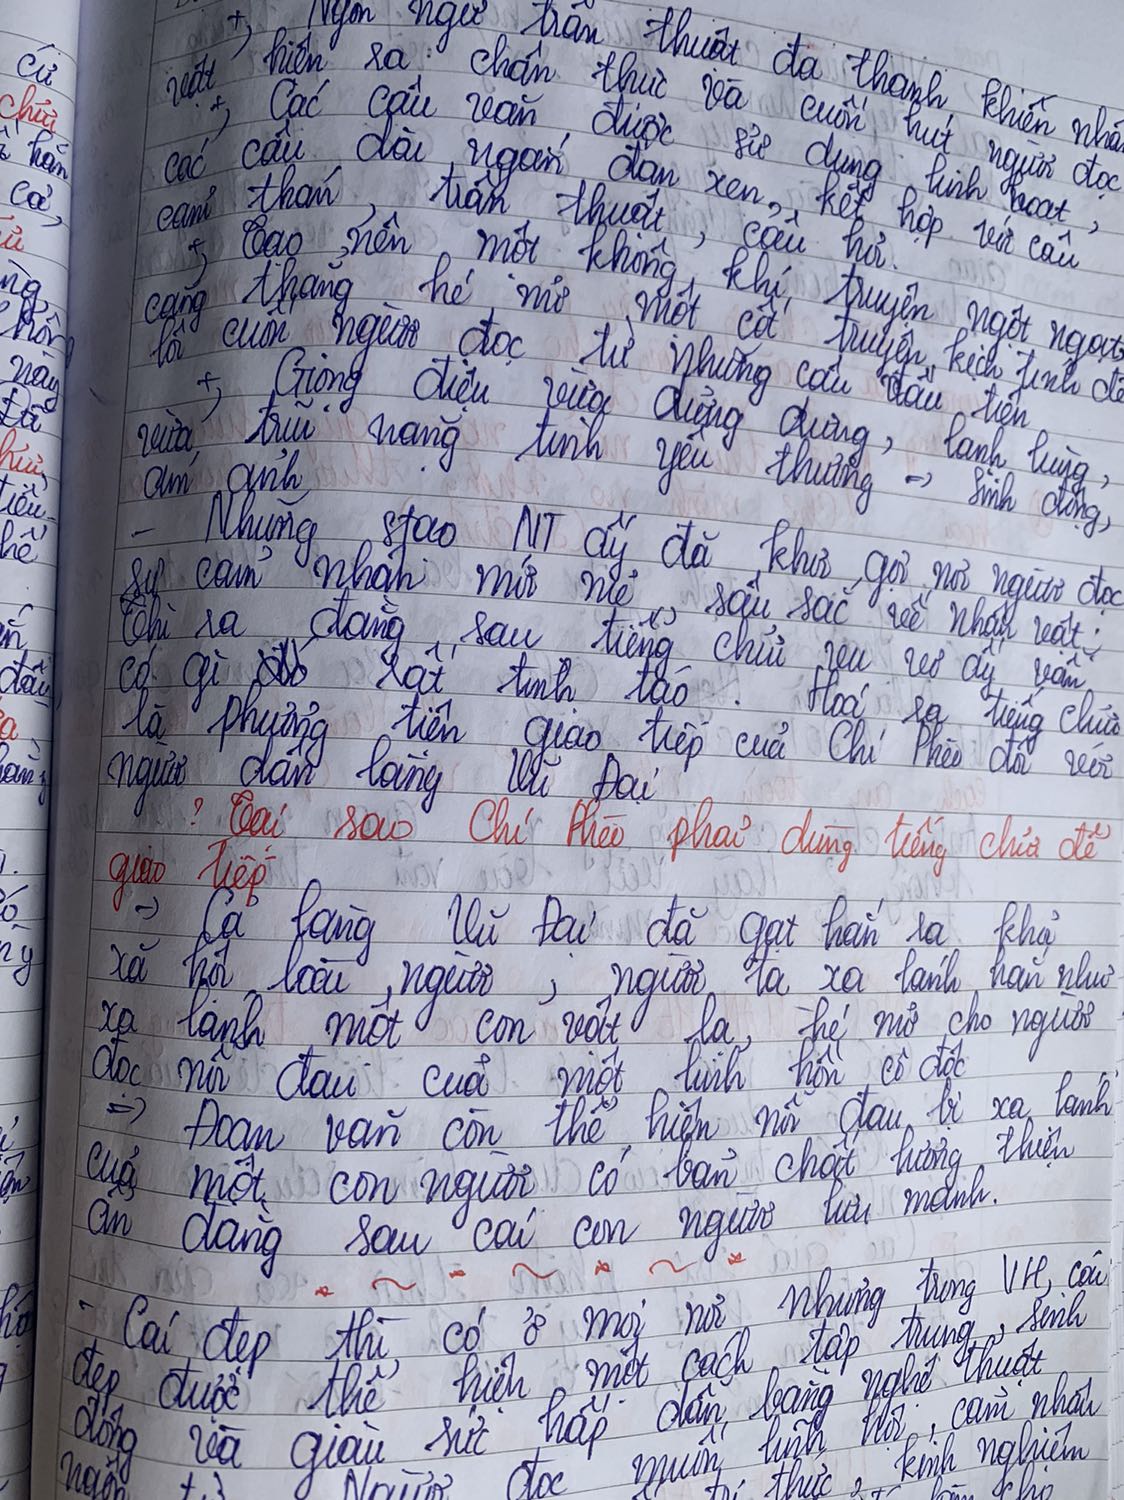 +, Ngôn ngữ trần thuật đa thanh khiến nhân
vật hiện ra chân thực và cuốn hút người đọc
+, Các câu văn được sử dụng linh hoạt,
các câu dài, ngắn đan xen, kết hợp với câu
cảm thán, trần thuật, câu hỏi.
+, Tạo nên một không khí truyện ngột ngạt,
căng thẳng hé mở một cốt truyện kịch tính để
lôi cuốn người đọc từ những câu đầu tiên
+, Giọng điệu vừa dửng dưng, lạnh lùng,
vừa trĩu nặng tình yêu thương => sinh động,
ám ảnh
- Những stạo NT ấy đã khơi gợi nơi người đọc
sự cảm nhận mới mẻ, sâu sắc về nhân vật:
Thì ra đằng sau tiếng chửi vu vơ ấy vẫn
có gì đó rất tỉnh táo. Hoá ra tiếng chửi
là phương tiện giao tiếp của Chí Phèo đối với
người dân làng Vũ Đại
? Tại sao Chí Phèo phải dùng tiếng chửi để
giao tiếp
-> Cả làng Vũ Đại đã gạt hắn ra khỏi
xã hội loài người; người ta xa lánh hắn như
xa lánh một con vật lạ, hé mở cho người
đọc nỗi đau của một linh hồn cô độc
=> Đoạn văn còn thể hiện nỗi đau bị xa lánh
của một con người có bản chất lương thiện
ẩn đằng sau cái con người lưu manh.
- Cái đẹp thì có ở mọi nơi nhưng trong VH, cái
đẹp được thể hiện một cách tập trung, sinh
động và giàu sức hấp dẫn bằng nghệ thuật
ngôn từ. Người đọc muốn lĩnh hội, cảm nhận
tri thức, kinh nghiệm